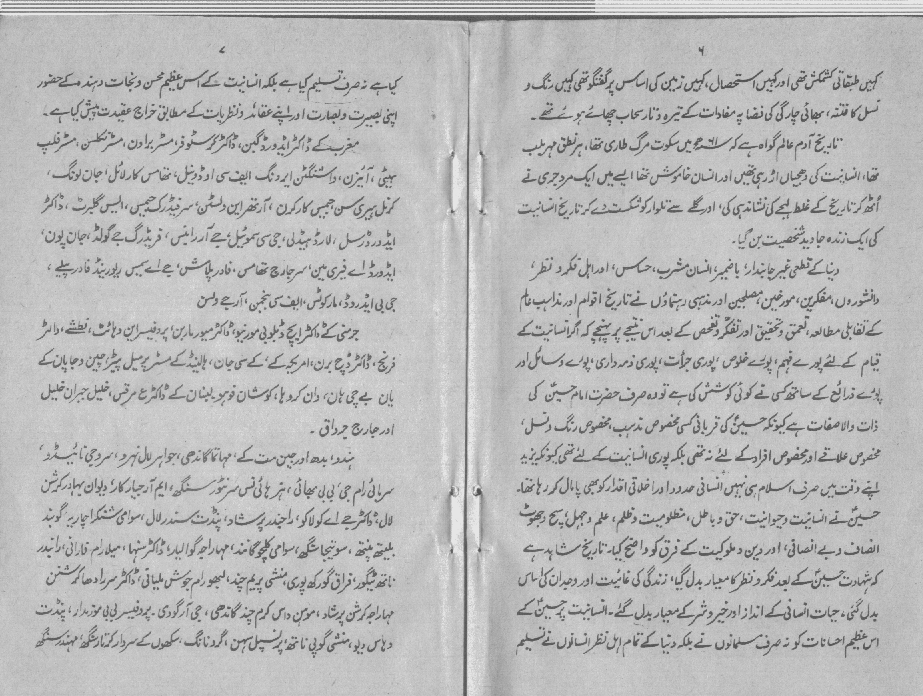 ۶
کہیں طبقاتی کشمکش تھی اور کہیں استحصال، کہیں زمین کی اساس پر گفتگو تھی کہیں رنگ و
نسل کا فتنہ، بھائی چارگی کی فضا پہ مفادات کے تیرہ و تار سحاب چھائے ہوئے تھے۔
تاریخ آدم عالم گواہ ہے کہ ۶۱ھ میں سکوت مرگ طاری تھا، ہر نطق مہر بلب
تھا، انسانیت کی دھجیاں اڑ رہی تھیں اور انسان خاموش تھا ایسے میں ایک مرد جری نے
اُٹھ کر تاریخ کے غلط لہجے کی نشاندہی کی، اور گلے سے تلوار کو شکست دے کر تاریخ انسانیت
کی ایک زندہ جاوید شخصیت بن گیا۔
دنیا کے قطعی غیر جانبدار، باضمیر، انسان مشرب، حساس، اور اہل فکر و نظر،
دانشوروں، مفکرین، مورخین، مصلحین اور مذہبی رہنماؤں نے تاریخ اقوام اور مذاہب عالم
کے تقابلی مطالعہ، تعمق و تحقیق اور تفکر و تفحص کے بعد اس نتیجے پر پہنچے کہ اگر انسانیت کے
قیام کے لئے پورے فہم، پورے خلوص، پوری جرأت، پوری ذمہ داری، پورے وسائل اور
پورے ذرائع کے ساتھ کسی نے کوئی کوشش کی ہے تو وہ صرف حضرت امام حسینؑ کی
ذات والاصفات ہے کیونکہ حسینؑ کی قربانی کسی مخصوص مذہب، مخصوص رنگ و نسل،
مخصوص علاقے اور مخصوص افراد کے لئے نہ تھی بلکہ پوری انسانیت کے لئے تھی کیونکہ یزید
اپنے وقت میں صرف اسلام ہی نہیں انسانی حدود اور اخلاقی اقدار کو بھی پامال کر رہا تھا۔
حسینؑ نے انسانیت و حیوانیت، حق و باطل، مظلومیت و ظلم، علم و جہل، سچ و جھوٹ
انصاف و بے انصافی، اور دین و ملوکیت کے فرق کو واضح کیا۔ تاریخ شاہد ہے
کہ شہادت حسینؑ کے بعد فکر و نظر کا معیار بدل گیا، زندگی کی غائیت اور وجدان کی اساس
بدل گئی، حیات انسانی کے انداز اور خیر و شر کے معیار بدل گئے۔ انسانیت پر حسینؑ کے
اس عظیم احسانات کو نہ صرف مسلمانوں نے بلکہ دنیا کے تمام اہل نظر انسانوں نے تسلیم
۷
کیا ہے نہ صرف تسلیم کیا ہے بلکہ انسانیت کے اس عظیم محسن و نجات دہندہ کے حضور
اپنی بصیرت و بصارت اور اپنے عقائد و نظریات کے مطابق خراج عقیدت پیش کیا ہے۔
مغرب کے ڈاکٹر ایڈورڈ گبن، ڈاکٹر کرسٹوفر، مسٹر براؤن، مسٹر نکلسن، مسٹر فلپ
ہیٹی، آئیزن، واشنگٹن ایرونگ، ایف سی اوڈونیل، تھامس کارلائل، جان لونگ،
کرنل ہیری سن جیمس کارکرن، آرتھر این ولسٹن، سر فیڈرک جیمس، الیس گلبرٹ، ڈاکٹر
ایڈورڈ رسل، لارڈ ہیڈلی، جی سی سموئیل، جے آر رابنس، فریڈرک جے گولڈ، جان پون،
ایڈورڈ اے فیری مین، سر جارج تھامس، فادر پلاش، جے اے سیمس ریورینڈ فادر پیلے،
جی بی ایڈورڈ، مارکوٹس، ایف سی بنجمن، آر جے ولسن
جرمنی کے ڈاکٹر ایچ ڈبلو بی مورنیو، ڈاکٹر میور ماربن، پروفیسر این وہائٹ، نطشے، والٹر
فرنچ، ڈاکٹر ڈیج برن، امریکہ کے، کے سی جان، ہالینڈ کے مسٹر پرسیل پیٹر، چین و جاپان کے
یان بے چی ہان، وان کروہا، کوشان فوہو، لبنان کے ڈاکٹر ع مرقس، خلیل جبران خلیل
اور جارج جرداق۔
ہندو، بدھ اور جین مت کے، مہاتما گاندھی، جواہر لال نہرو، سروجنی نائیڈو،
سربائی رام جی، بی بی بھائی، ہز ہائی نس سر نٹور سنگھ، ایم آر جیارکار، دیوان بہادر کرشن
لال، ڈاکٹر جے اے کولاکو، راجندر پرشاد، پنڈت سندر لال، سوامی شنکرا چاریہ، گوبند
بلبھ پنتھ، سوتنجا سنگھ، سوامی کلجگانند، مہاراجہ گوالیار، ڈاکٹر سنہا، میلا رام فارانی، رابندر
ناتھ ٹیگور، فراق گورکھپوری، منشی پریم چند، لبھو رام جوش ملسیانی، ڈاکٹر سر رادھا کرشنن
مہاراجہ کرشن پرشاد، موہن داس کرم چند گاندھی، جی آر گودی، پروفیسر بی بی موزیدار، پنڈت
دیاس دیو، منشی گوپی ناتھ، پرنسپل سہن، گرو نانک، سکھوں کے سردار کرتار سنگھ، مہندر سنگھ